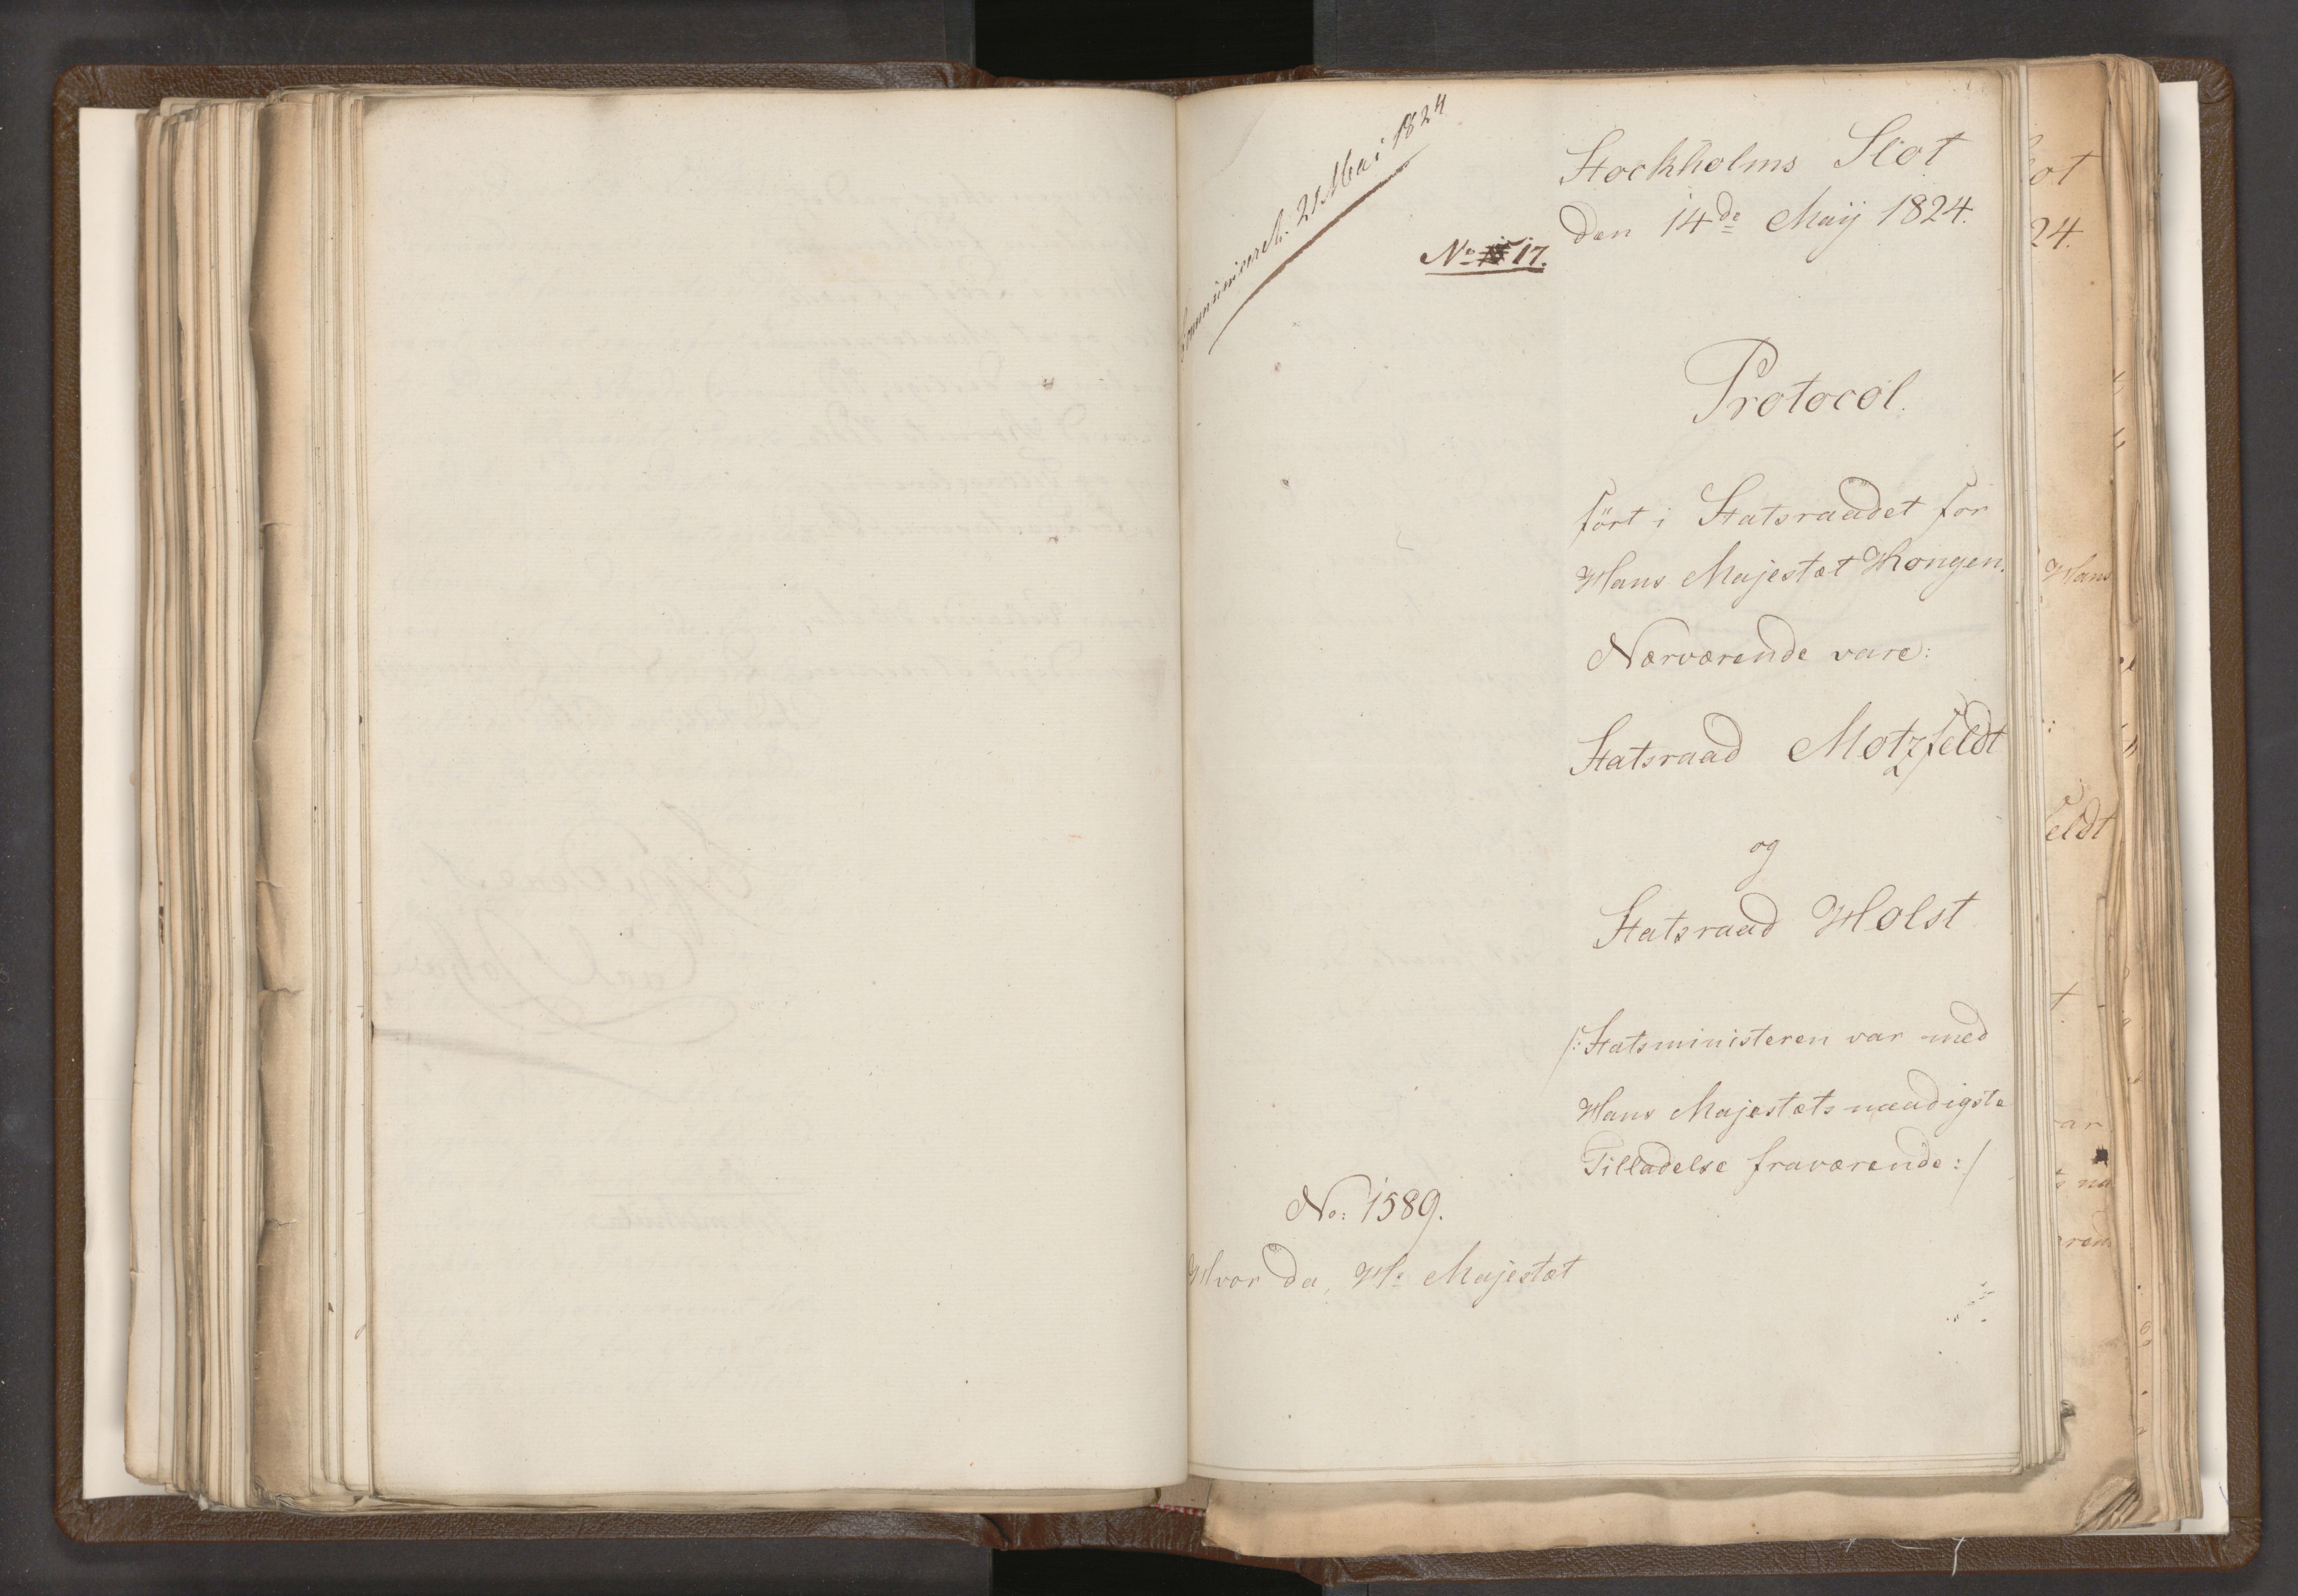 Communiceret: 21 Mai 1824
Stockholms Slot
den 14de Maij 1824.
No 17.
Protocol.
ført i Statsraadet for
Hans Majestæt Kongen.
Nærværende vare:
Statsraad Motzfeldt
og
Statsraad Holst
/: Statsministeren var med
Hans Majestæts naadigste
Tilladelse fraværende :/
No: 1589.
Hvor da, Hs Majestæt